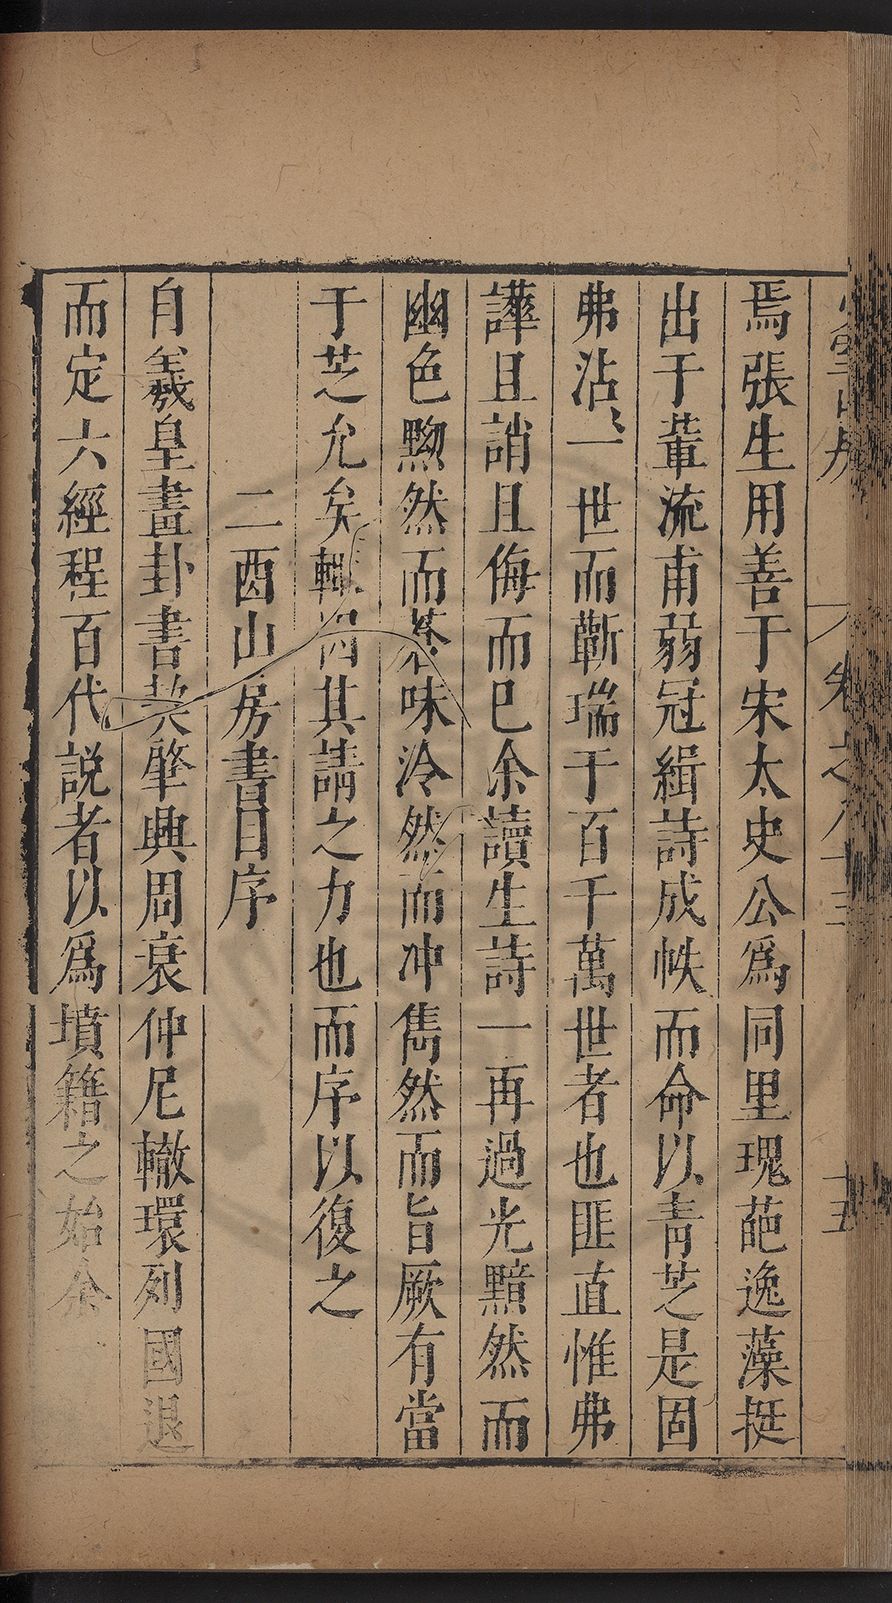 焉張生用善于宋太史公爲同里瑰葩逸藻挺
出于輩流甫弱冠緝詩成帙而命以靑芝是固
弗沾沾一世而蘄瑞于百千萬世者也匪直惟弗
譁且誚且侮而巳余讀生詩一再過光黯然而
幽色黝然而蒼味泠然而冲雋然而旨厥有當
于芝允矣輒因其請之力也而序以復之
二酉山房書目序
自羲皇畫卦書契肇興周衰仲尼轍環列國退
而定六經程百代説者以爲墳籍之始余
卷之八十三
十五